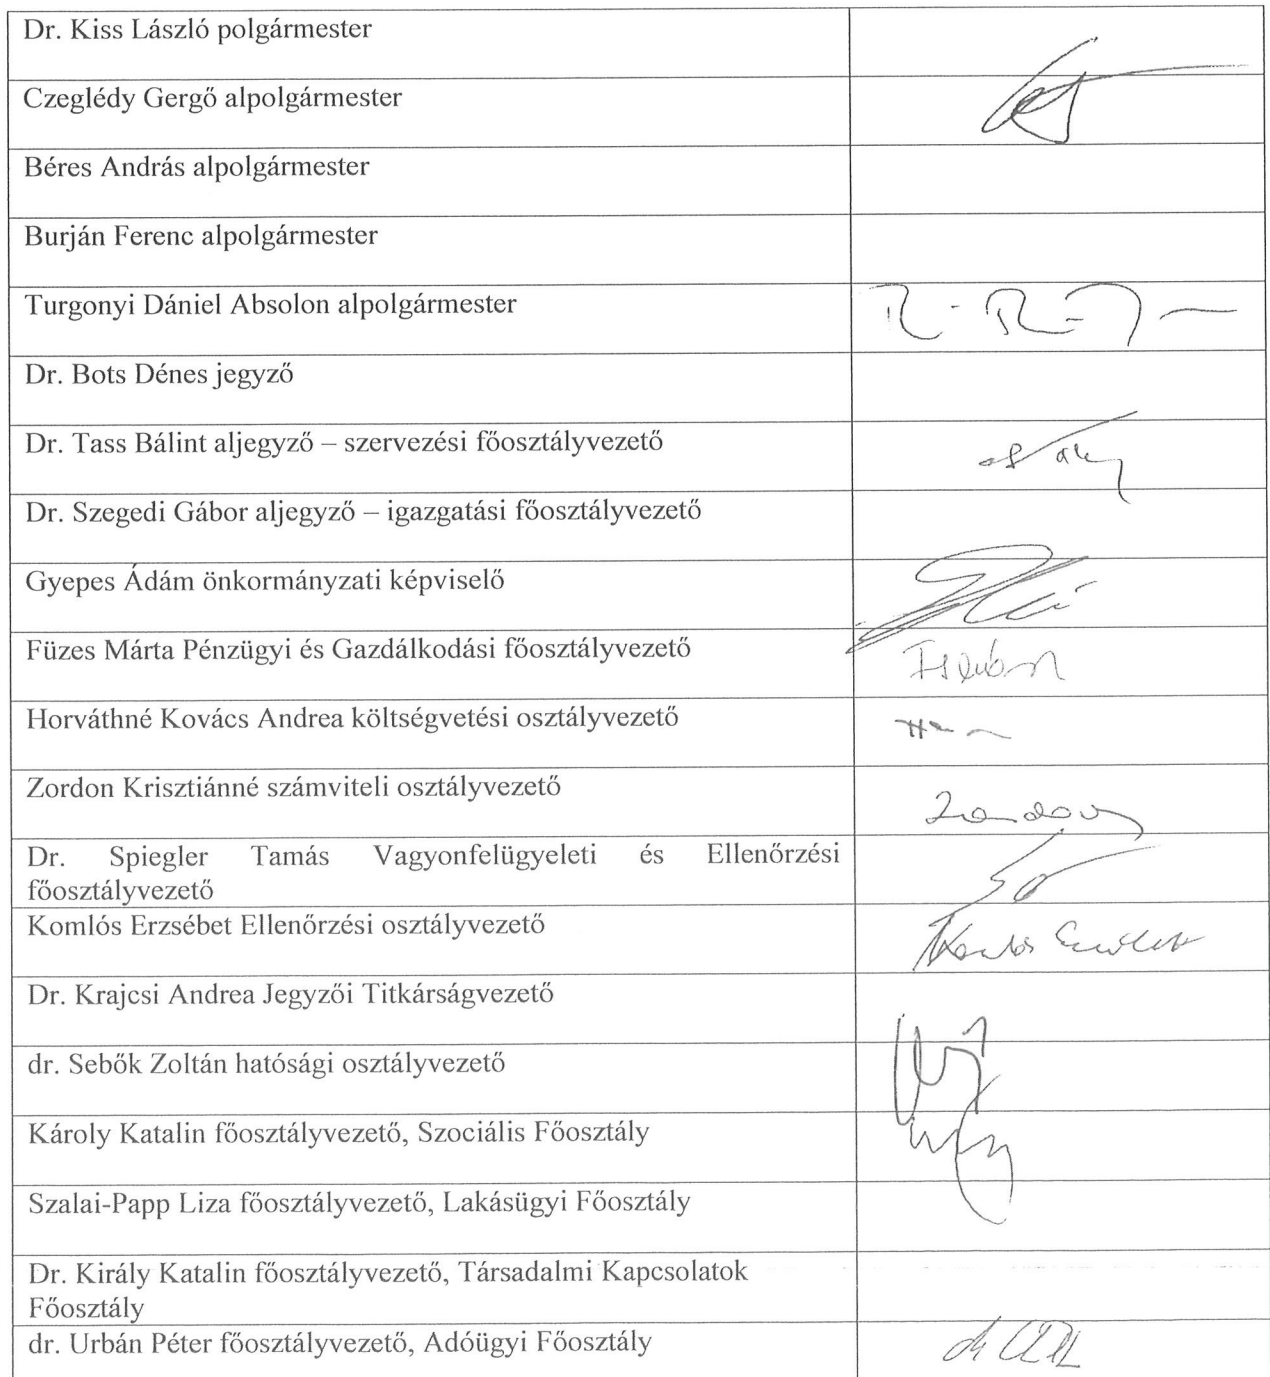 Dr. Kiss László polgármester
Czeglédy Gergő alpolgármester
Béres András alpolgármester
Burján Ferenc alpolgármester
Turgonyi Dániel Absolon alpolgármester
Dr. Bots Dénes jegyző
Dr. Tass Bálint aljegyző – szervezési főosztályvezető
Dr. Szegedi Gábor aljegyző – igazgatási főosztályvezető
Gyepes Ádám önkormányzati képviselő
Füzes Márta Pénzügyi és Gazdálkodási főosztályvezető
Horváthné Kovács Andrea költségvetési osztályvezető
Zordon Krisztiánné számviteli osztályvezető
Dr. Spiegler Tamás Vagyonfelügyeleti és Ellenőrzési
főosztályvezető
Komlós Erzsébet Ellenőrzési osztályvezető
Komlós Erzsébet
Dr. Krajcsi Andrea Jegyzői Titkárságvezető
dr. Sebők Zoltán hatósági osztályvezető
Károly Katalin főosztályvezető, Szociális Főosztály
Szalai-Papp Liza főosztályvezető, Lakásügyi Főosztály
Dr. Király Katalin főosztályvezető, Társadalmi Kapcsolatok
Főosztály
dr. Urbán Péter főosztályvezető, Adóügyi Főosztály